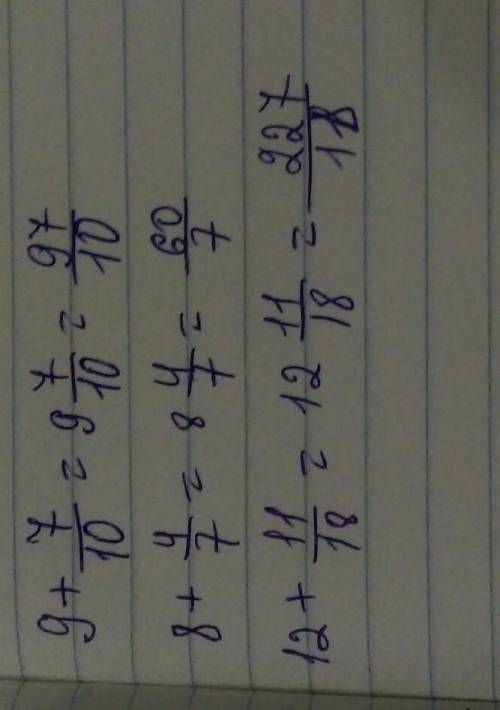 9 + 7/10 = 9 7/10 = 97/10
8 + 4/7 = 8 4/7 = 60/7
12 + 11/18 = 12 11/18 = 227/18